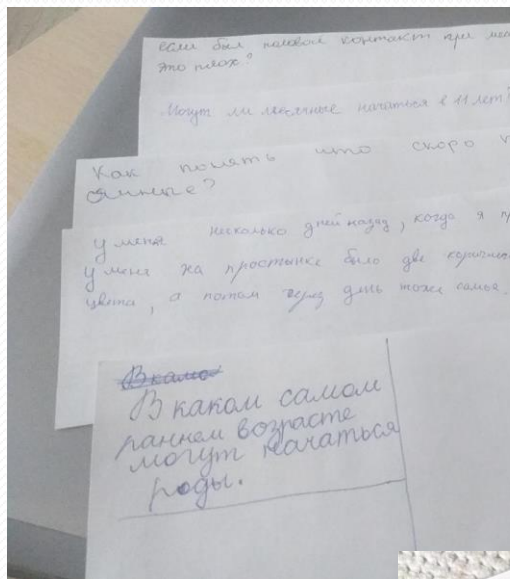 если был половой контакт при
это плохо?
Могут ли месячные начаться в 11 лет?
Как понять что скоро
у меня несколько дней назад, когда я
у меня на простынке было две
цвета, а потом через день тоже самое.
В каком самом
раннем возрасте
могут начаться
роды.